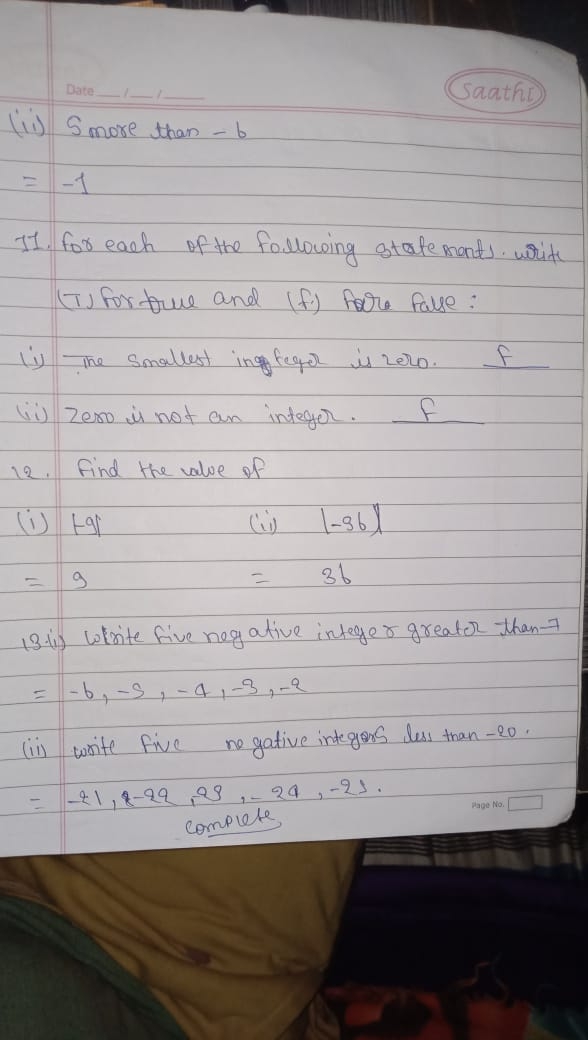 Date __/__/____
Saathi
(ii) 5 more than - 6
= -1
11. for each of the following statements. write
(T) for true and (f) for false :
(i) The smallest integer is zero. f
(ii) Zero is not an integer. f
12. find the value of
(i) |-9| (ii) |-36|
= 9 = 36
13.(i) Write five negative integer greater than -7
= -6, -5, -4, -3, -2
(ii) write five negative integers less than -20.
= -21, -22, 23, -24, -25.
complete
Page No.